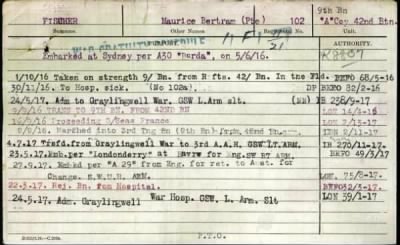 FISCHER Maurice Bertram (Pte) 102 9th Bn
"A"Coy 42nd Btn.
Surname.
AUTHORITY.
WAR GRATUITY
21
Embarked at Sydney per A30 "Borda", on 5/6/16.
1/10/16 Taken on strength 9/ Bn. from R fts. 42/ Bn. In the Fld. BKFO 68/5-16
30/11/16. To Hosp. sick. (No 102a) DP BKFO 82/2-16
24/5/17. Adm to Graylingwell War. GSW L.Arm slt. IB 238/9-17
TRANS TO 9TH BN. FROM 42ND BN
Proceeding O/Seas France
Marched into 3rd Tng Bn (9th Bn) from 42nd Bn.
4.7.17 Tfsfd.from Graylingwell War to 3rd A.A.H. GSW LT.ARM. IB 270/11-17
23.5.17.Emb.per "Londonderry" at Havre for Eng.SW RT ARM. BKFO 49/3/17
27.9.17. Embkd per "A 29" from Eng. for ret. to Aust. for
Change. LON. 75/8-17.
22-3.17. Rej. Bn. from Hospital. BKFO32/3-17.
24.5.17. Adm. Graylingwell War Hosp. GSW. L. Arm. Slt LON 39/1-17
P.T.O.